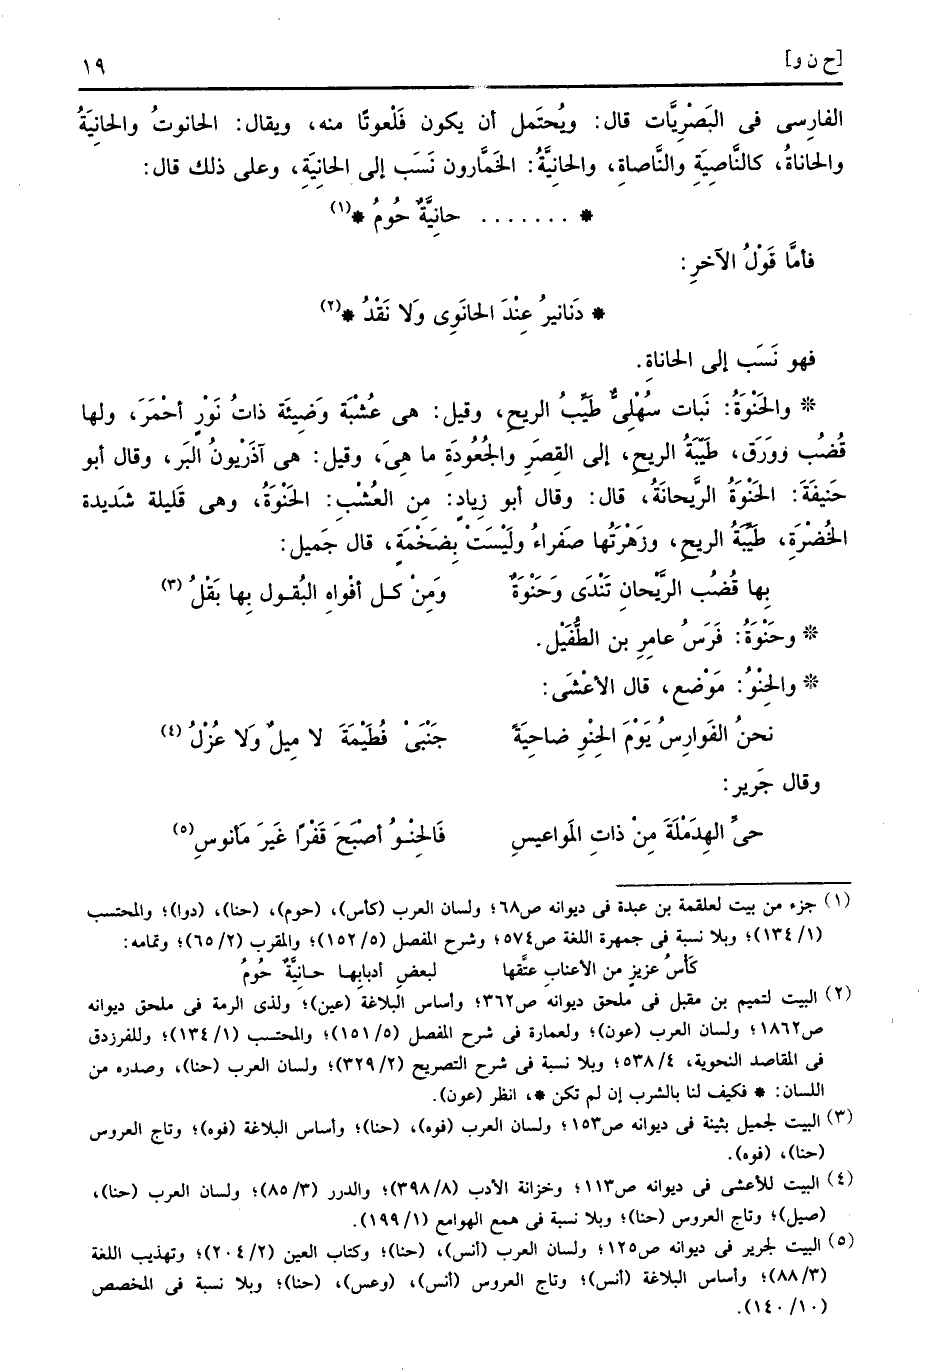 [ح ن و] ١٩
الفارِسى فى البَصْرِيَّات قال: ويُحتَمل أن يكون فَلْعوتًا منه، ويقال: الحانوتُ والحانِيَةُ
والحاناةُ، كالنَّاصِيَةِ والنَّاصاة، والحانِيَّةُ: الخَمَّارون نَسَب إلى الحانِيَةِ، وعلى ذلك قال:
* . . . . . . . حانِيَّةٌ حُومُ *(١)
فأمَّا قَوْلُ الآخرِ:
* دَنانيرُ عِنْدَ الحانَوِى وَلَا نَقْدُ *(٢)
فهو نَسَب إلى الحاناةِ.
* والحَنْوَةُ: نَبات سُهْلِىٌّ طَيِّبُ الريحِ، وقيل: هى عُشْبَة وَضِيئَة ذاتُ نَوْرٍ أحْمَرَ، ولها
قُضُبٌ ووَرَق، طَيِّبَةُ الريحِ، إلى القِصَرِ والجُعُودَةِ ما هِىَ، وقيل: هى آذَرْيونُ البَر، وقال أبو
حَنيفَةَ: الحَنْوَةُ الرَّيحانَةُ، قال: وقال أبو زيادٍ: من العُشْبِ: الحَنْوَةُ، وهى قَليلة شَديدة
الخُضْرَةِ، طَيِّبَةُ الريحِ، وزَهْرَتُها صفراءُ ولَيْسَتْ بِضَخْمَةٍ، قال جَميل:
بِها قُضُب الرَّيْحانِ تَنْدَى وَحَنْوَةٌ وَمِنْ كـل أفْواهِ البُقـول بِها بَقْلُ (٣)
* وحَنْوَةُ: فَرَسُ عامرِ بن الطُّفَيْلِ.
* والحِنْوُ: مَوْضع، قال الأعْشَى:
نحنُ الفَوارِسُ يَوْمَ الحِنوِ ضاحِيَةً جَنْبَىْ فُطَيْمَةَ لا مِيلٌ وَلا عُزْلُ (٤)
وقال جَرير:
حىِّ الهِدَمْلَةَ مِنْ ذاتِ المَواعيسِ فَالحِنْـوُ أصْبَحَ قَفْرًا غَيرَ مَأنوسِ(٥)
(١) جزء من بيت لعلقمة بن عبدة فى ديوانه ص٦٨؛ ولسان العرب (كأس)، (حوم)، (حنا)، (دوا)؛ والمحتسب
(١/١٣٤)؛ وبلا نسبة فى جمهرة اللغة ص٥٧٤؛ وشرح المفصل (٥/١٥٢)؛ والمقرب (٢/٦٥)؛ وتمامه:
كَأْسُ عزيزٍ من الأعنابِ عتَّقها لبعضِ أربابِهـا حـانِيَّةٌ حُومُ
(٢) البيت لتميم بن مقبل فى ملحق ديوانه ص٣٦٢؛ وأساس البلاغة (عين)؛ ولذى الرمة فى ملحق ديوانه
ص١٨٦٢؛ ولسان العرب (عون)؛ ولعمارة فى شرح المفصل (٥/١٥١)؛ والمحتسب (١/١٣٤)؛ وللفرزدق
فى المقاصد النحوية، ٤/٥٣٨؛ وبلا نسبة فى شرح التصريح (٢/٣٢٩)؛ ولسان العرب (حنا)، وصدره من
اللسان: * فكيف لنا بالشرب إن لم تكن *، انظر (عون).
(٣) البيت لجميل بثينة فى ديوانه ص١٥٣؛ ولسان العرب (فوه)، (حنا)؛ وأساس البلاغة (فوه)؛ وتاج العروس
(حنا)، (فوه).
(٤) البيت للأعشى فى ديوانه ص١١٣؛ وخزانة الأدب (٨/٣٩٨)؛ والدرر (٣/٨٥)؛ ولسان العرب (حنا)،
(صيل)؛ وتاج العروس (حنا)؛ وبلا نسبة فى همع الهوامع (١/١٩٩).
(٥) البيت لجرير فى ديوانه ص١٢٥؛ ولسان العرب (أنس)، (حنا)؛ وكتاب العين (٢/٢٠٤)؛ وتهذيب اللغة
(٣/٨٨)؛ وأساس البلاغة (أنس)؛ وتاج العروس (أنس)، (وعس)، (حنا)؛ وبلا نسبة فى المخصص
(١٠/١٤٠).